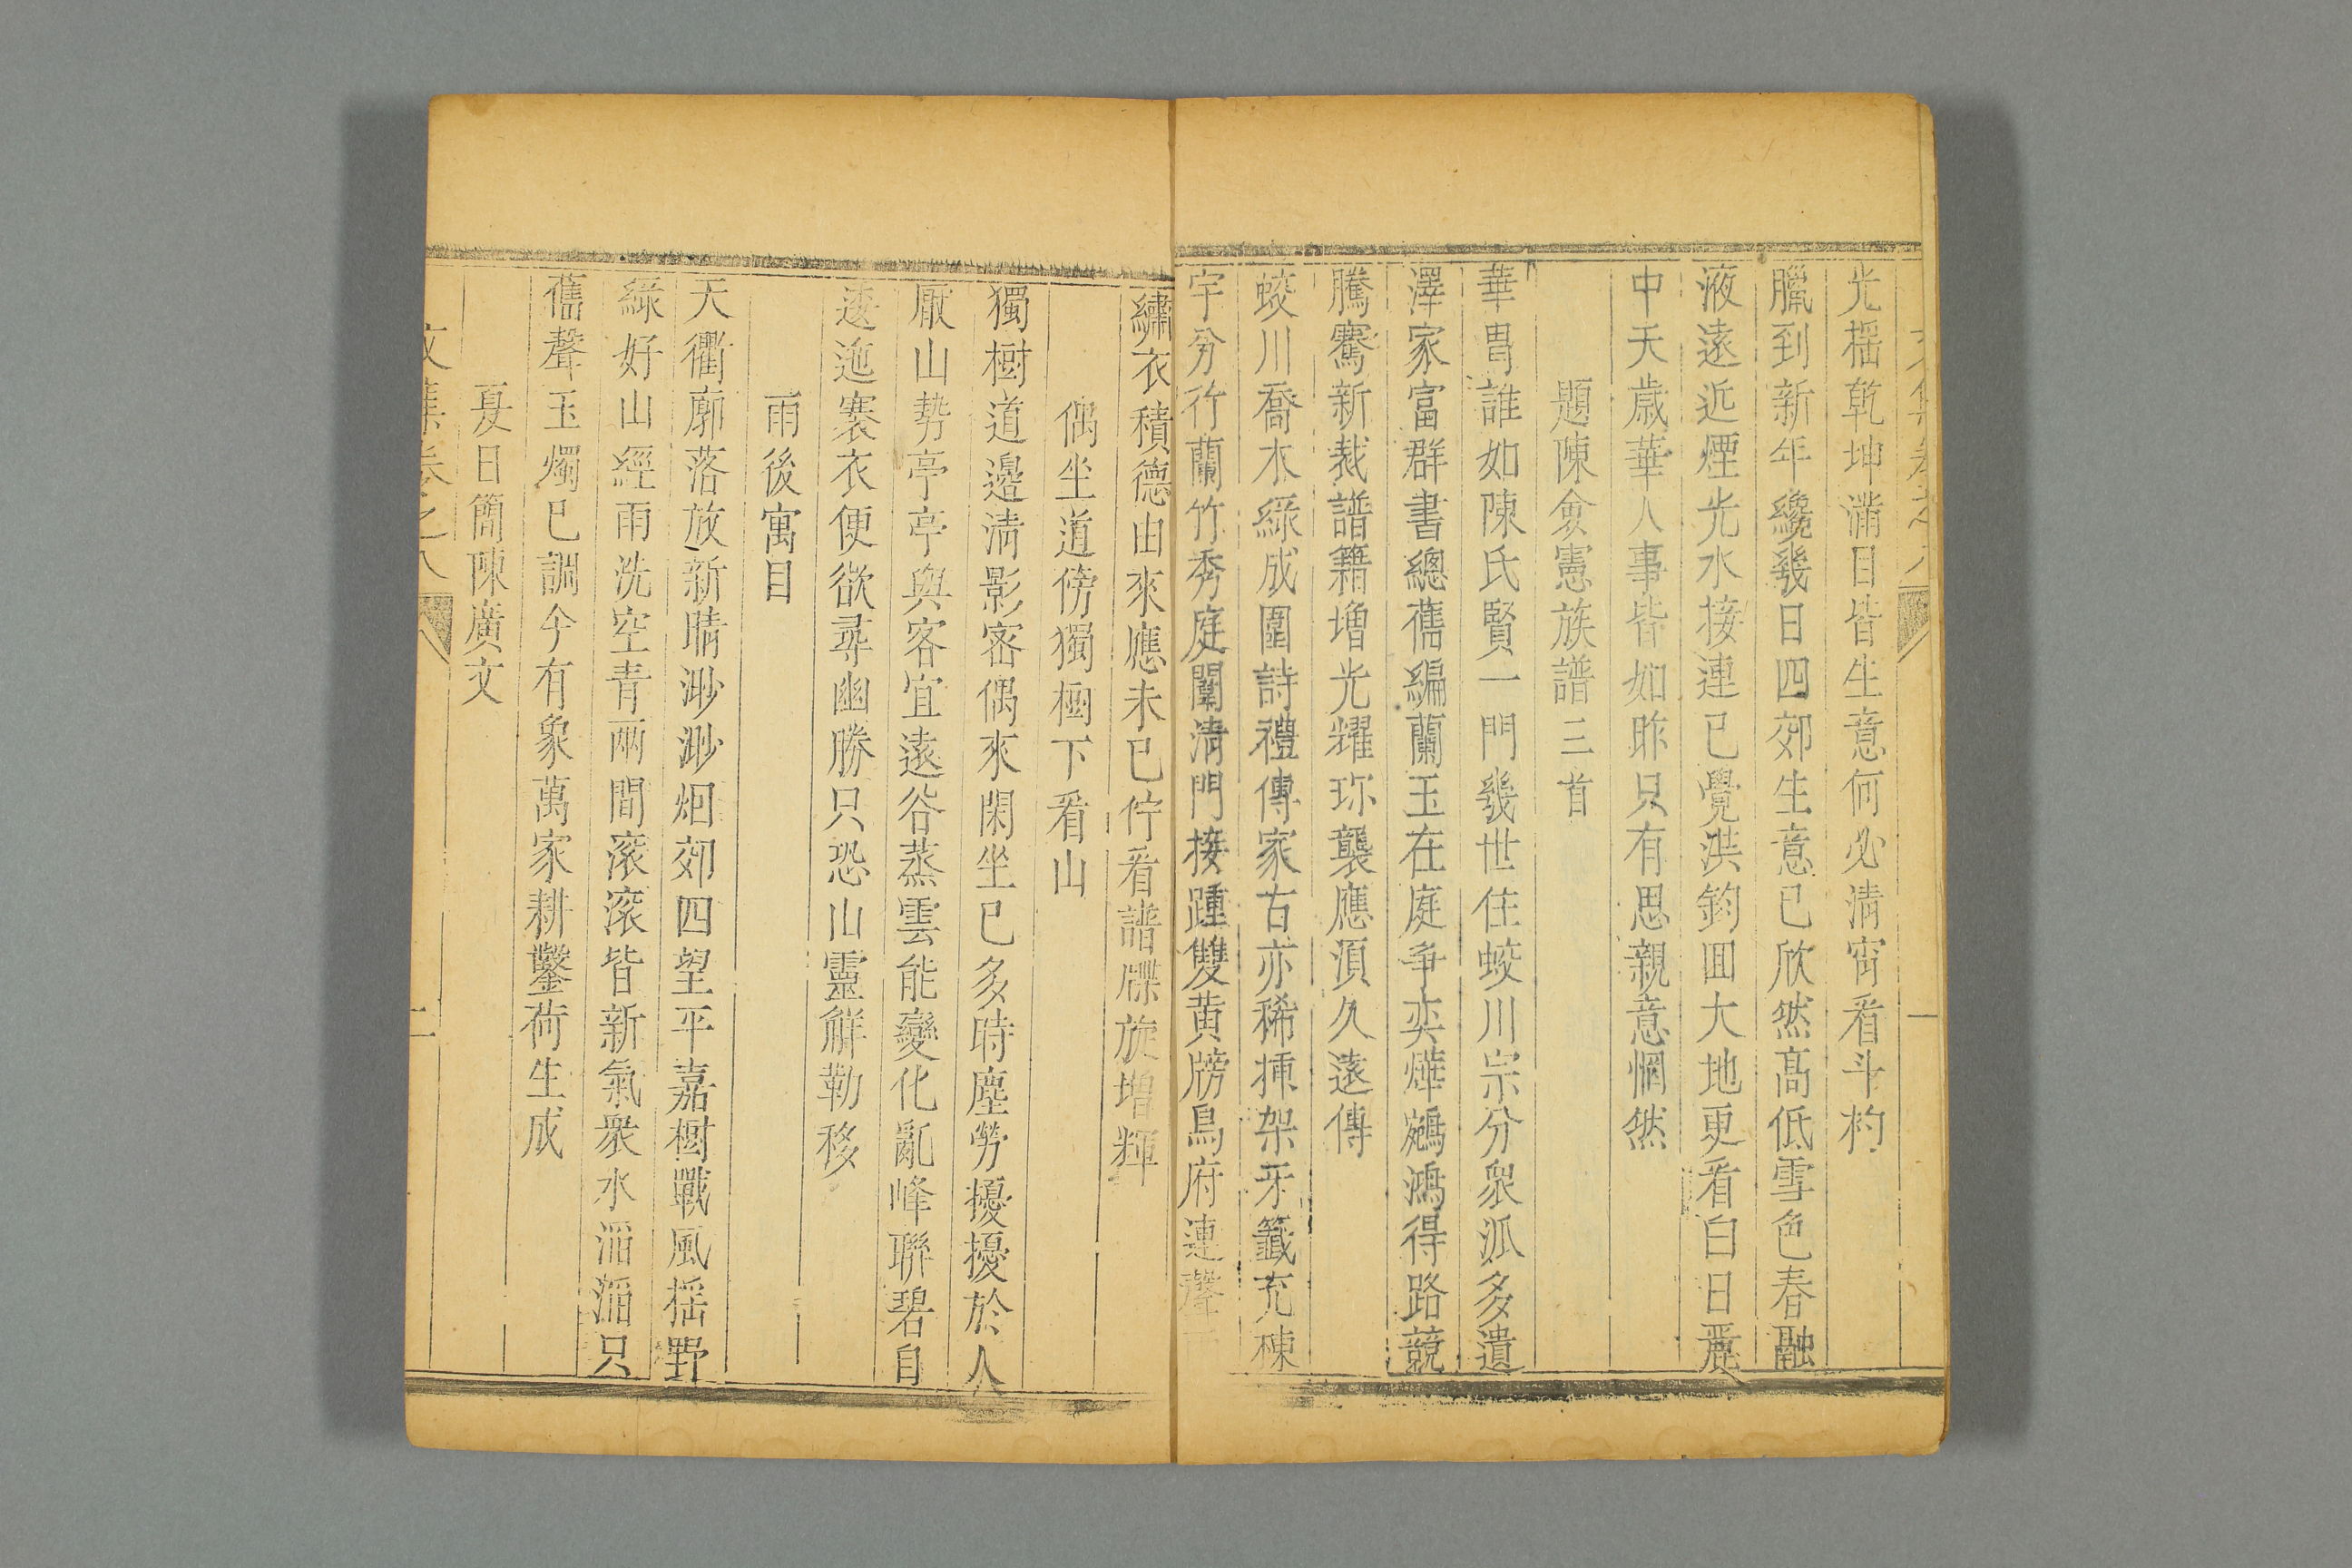 光摇乾坤滿目皆生意何必清宵看斗杓
臘到新年纔幾日四郊生意已欣然高低雪色春融
液遠近煙光水接連已覺洪鈞囬大地更看白日麗
中天歲華人事皆如昨只有思親意惘然
題陳僉憲族譜三首
華胄誰如陳氏賢一門幾世住蛟川宗分衆派多遺
澤家富群書總舊編蘭玉在庭爭奕燁鵷鴻得路競
騰騫新裁譜籍增光耀珎襲應湏久遠傳
蛟川喬木綠成圍詩禮傳家古亦稀揷架牙籤充棟
宇分行蘭竹秀庭闈清門接踵雙黃牓烏府連聲
繡衣積德由來應未已佇看譜牒旋增輝
偶坐道傍獨樹下看山
獨樹道邊淸影宻偶來閑坐已多時塵勞擾擾於人
厭山势亭亭與客宜遠谷蒸雲能變化亂峰聯碧自
逶迤褰衣便欲尋幽勝只恐山靈解勒移
雨後寓目
天衢廓落放新晴渺渺烟郊四望平嘉樹戰風摇野
綠好山經雨洗空青兩間滚滚皆新氣衆水滔滔只
舊聲玉燭已調今有象萬家耕鑿荷生成
夏日簡陳廣文
文集卷之八
二